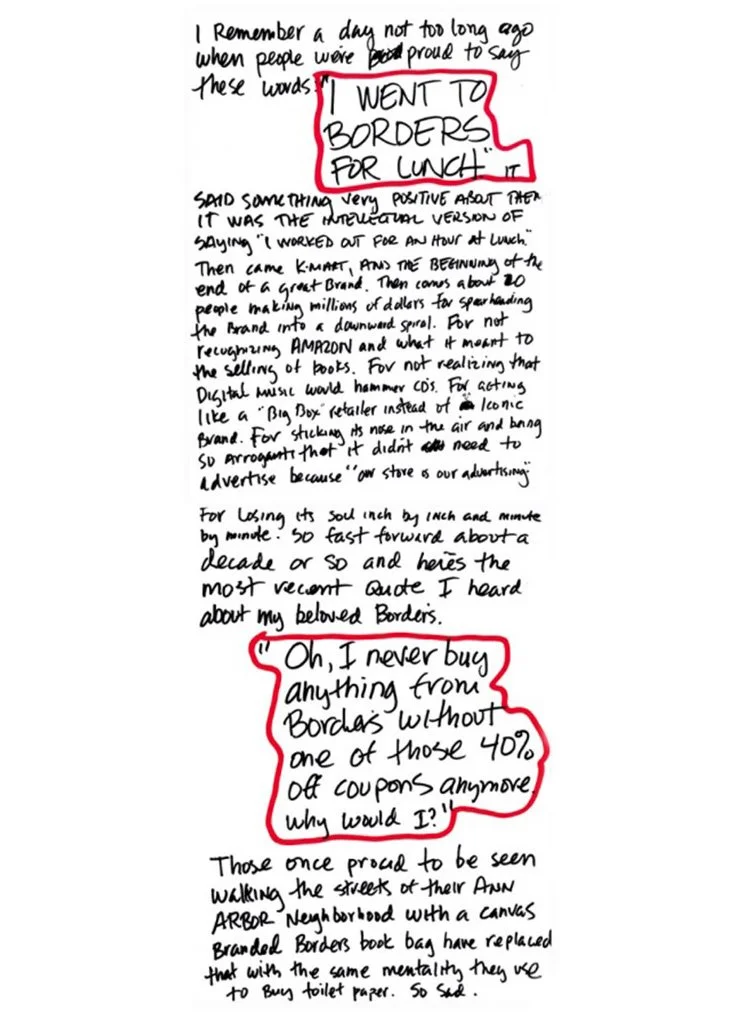 I Remember a day not too long ago
when people were proud to say
these words:
"I WENT TO
BORDERS
FOR LUNCH" IT
SAID SOMETHING very POSITIVE ABOUT THEM
IT WAS THE INTELLECTUAL VERSION OF
SAYING "I WORKED OUT FOR AN HOUR AT LUNCH."
Then came K-MART, AND THE BEGINNING of the
end of a great Brand. Then comes about 20
people making millions of dollars for spearheading
the Brand into a downward spiral. For not
recognizing AMAZON and what it meant to
the selling of books. For not realizing that
Digital Music would hammer CDs. For acting
like a "Big Box" retailer instead of Iconic
Brand. For sticking its nose in the air and being
so arrogant that it didn't need to
advertise because "our store is our advertising"
For Losing its Soul inch by inch and minute
by minute. So fast forward about a
decade or so and here's the
most recent Quote I heard
about my beloved Borders.
"Oh, I never buy
anything from
Borders without
one of those 40%
off coupons anymore.
Why would I?"
Those once proud to be seen
walking the streets of their ANN
ARBOR Neighborhood with a canvas
Branded Borders book bag have replaced
that with the same mentality they use
to Buy toilet paper. So Sad.